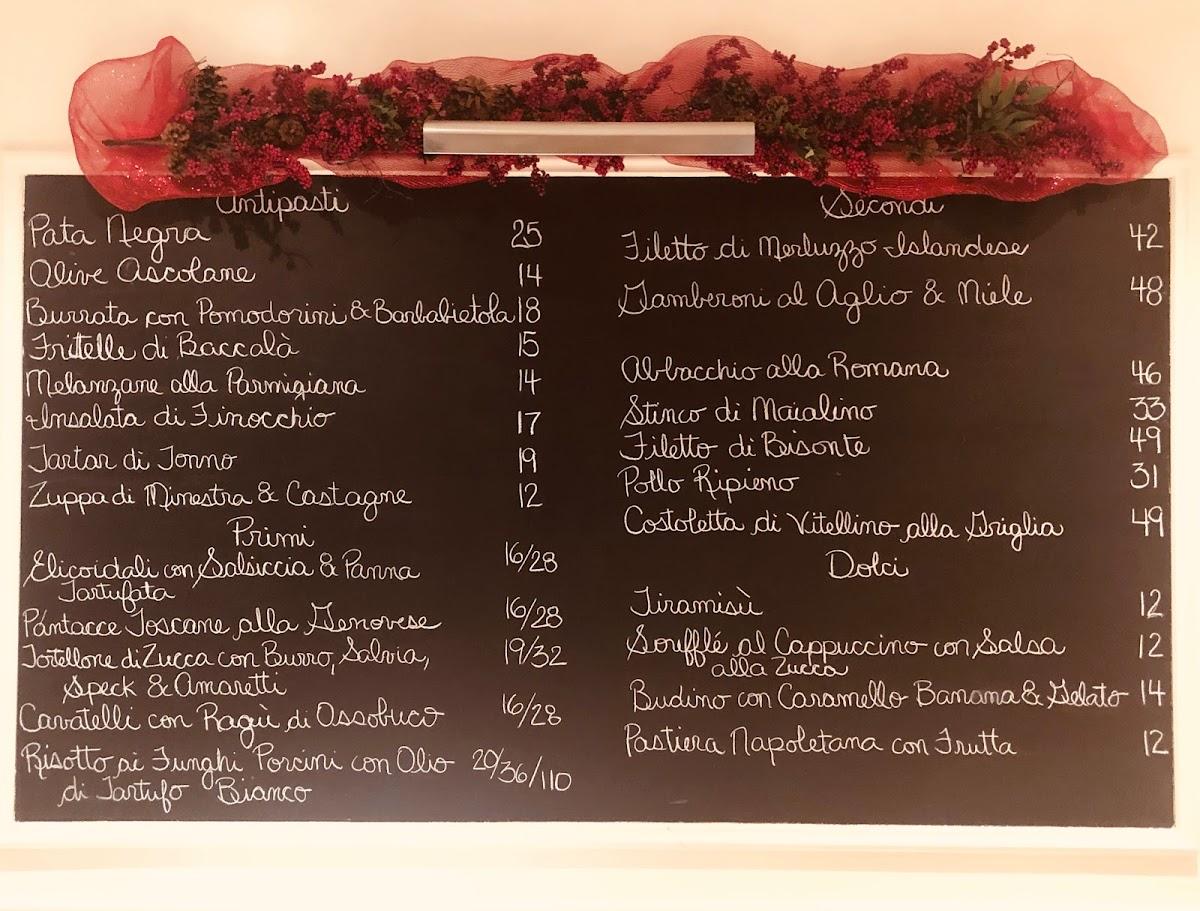 Antipasti
Pata Negra 25
Olive Ascolane 14
Burrata con Pomodorini & Barbabietola 18
Fritelle di Baccalà 15
Melanzane alla Parmigiana 14
Insalata di Finocchio 17
Tartar di Tonno 19
Zuppa di Minestra & Castagne 12
Primi
Elicoidali con Salsiccia & Panna 16/28
Tartufata
Pántacce Toscane alla Genovese 16/28
Tortellone di Zucca con Burro, Salvia, 19/32
Speck & Amaretti
Cavatelli con Ragù di Ossobuco 16/28
Risotto ai Funghi Porcini con Olio 20/36/110
di Tartufo Bianco
Secondi
Filetto di Merluzzo Islandese 42
Gamberoni al Aglio & Miele 48
Abbacchio alla Romana 46
Stinco di Maialino 33
Filetto di Bisonte 49
Pollo Ripieno 31
Costoletta di Vitellino alla Griglia 49
Dolci
Tiramisù 12
Soufflé al Cappuccino con Salsa 12
alla Zucca
Budino con Caramello Banana & Gelato 14
Pastiera Napoletana con Frutta 12